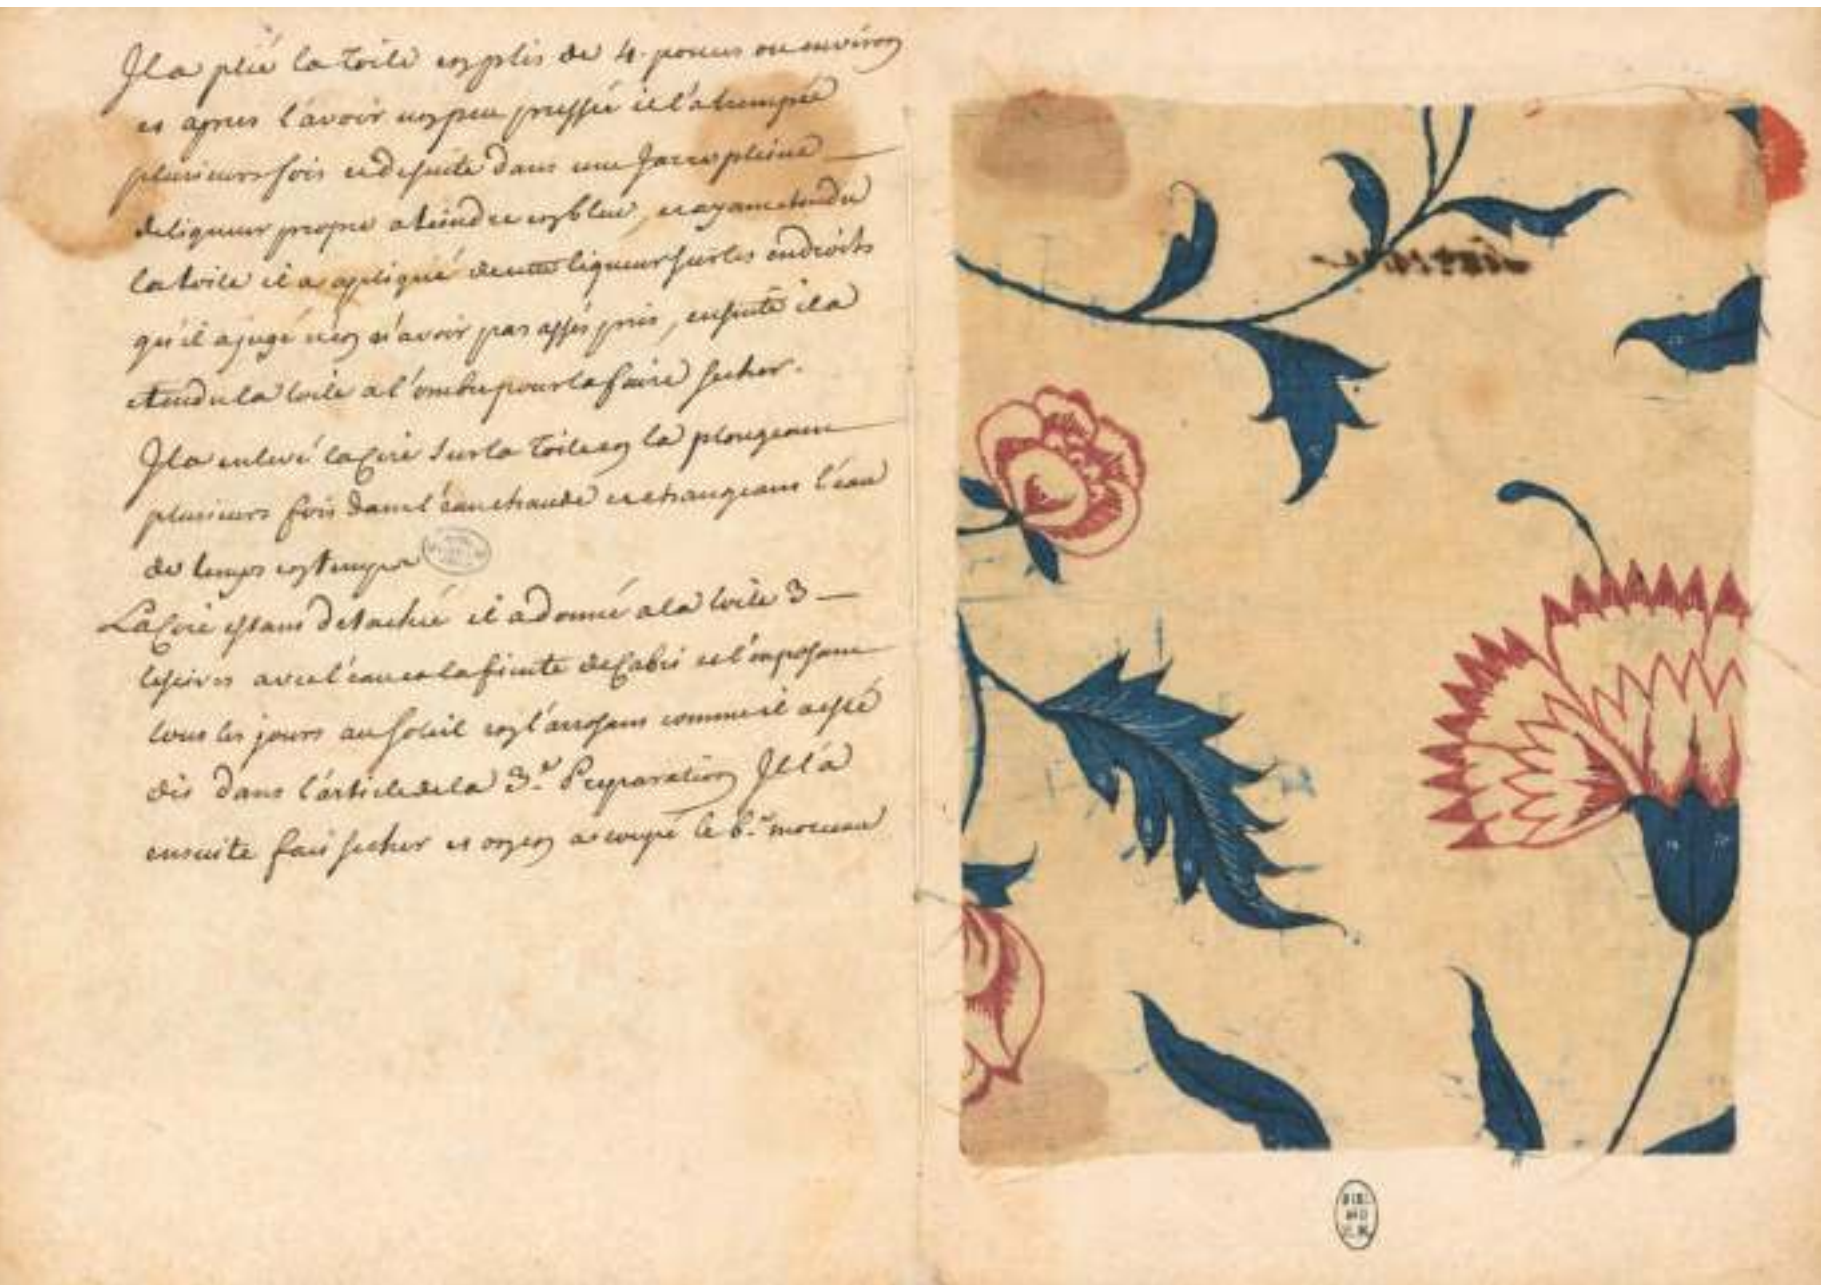 Il a plié la Toile en plis de 4. pouces ou environ
et apres l'avoir un peu pressée il l'a trempée
plusieurs fois et de suite dans une Jarre pleine
de liqueur propre a teindre en bleu, et ayant etendu
la toile il a apliqué de cette liqueur sur les endroits
qu'il a jugé n'en avoir pas assés pris, ensuite il a
etendu la toile a l'ombre pour la faire secher.
Il a enlevé la Cire sur la Toile en la plongeant
plusieurs fois dans l'eau chaude et changeant l'eau
de temps en temps
La Cire estant detachée il a donné a la toile 3
lesives avec l'eau et la fiente de Cabri et l'exposant
tous les jours au soleil en l'arrosant comme il a esté
dit dans l'article de la 3.e Preparation Il l'a
ensuite fait secher et on en a coupé le 6.e morceau